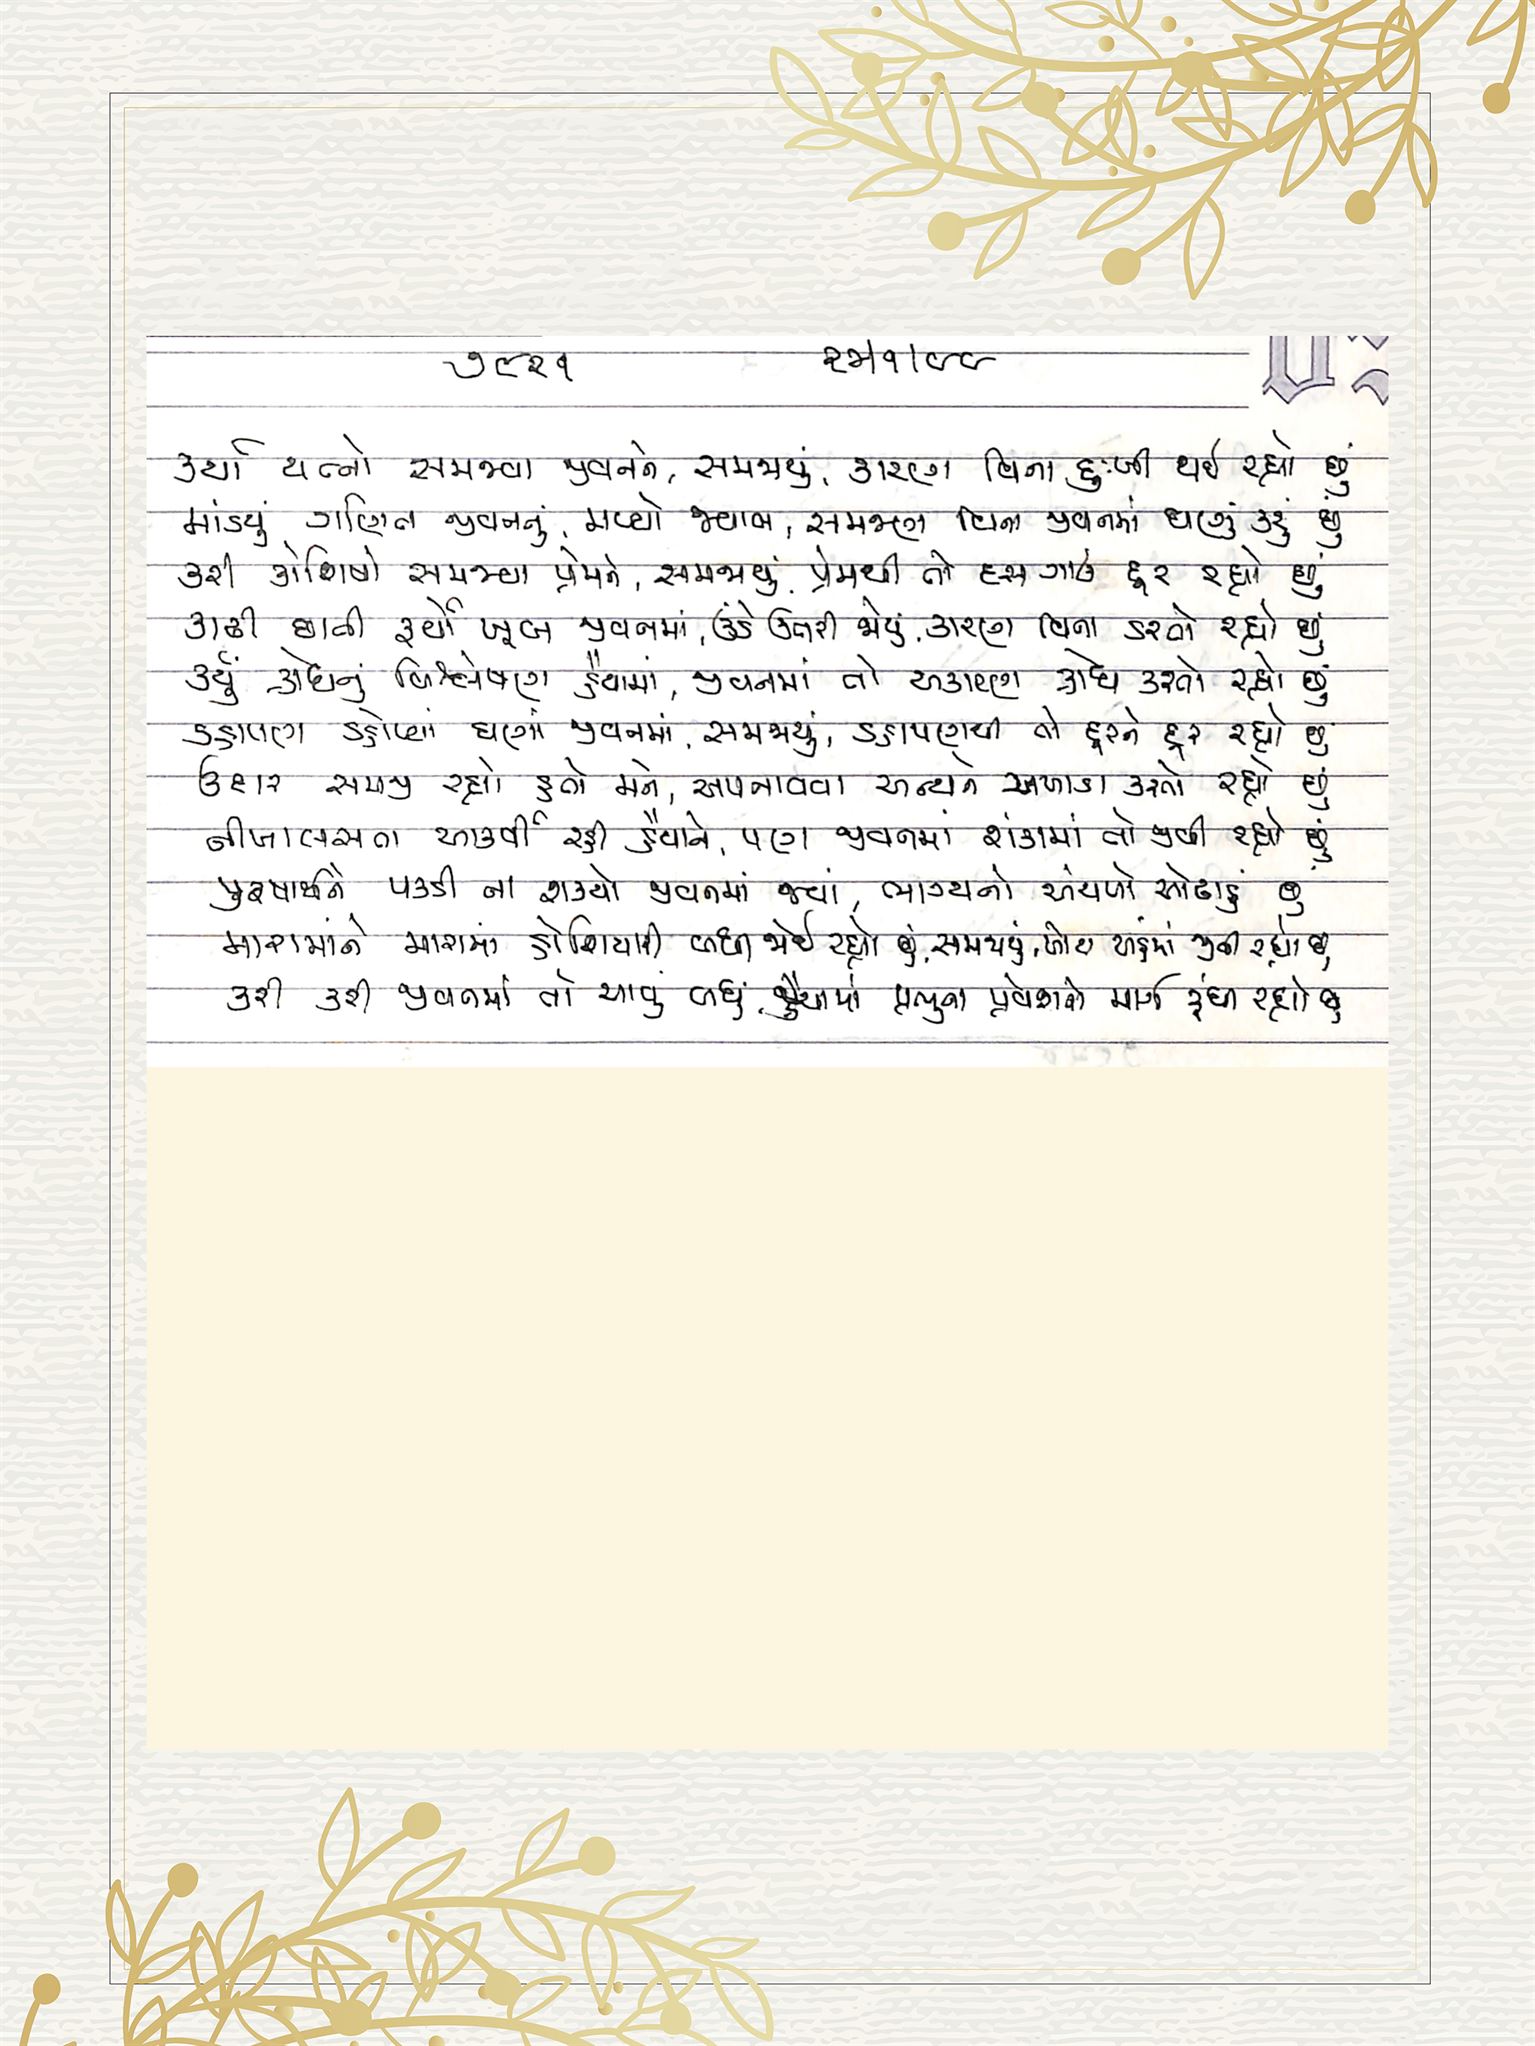 ૭૯૨૧ ૨૫|૧|૯૯
કર્યા યત્નો સમજવા જીવનને, સમજાયું, કારણ વિના દુઃખી થઈ રહ્યો છું
માંડયું ગણિત જીવનનું, મળ્યો જવાબ, સમજણ વિના જીવનમાં ઘણું કરું છું
કરી કોશિષો સમજવા પ્રેમને, સમજાયું, પ્રેમથી તો હજી ગાઉ દૂર રહ્યો છું
કાઢી છાતી ફર્યો ખૂબ જીવનમાં, ઊંડે ઉતરી જોયું, કારણ વિના ડરતો રહ્યો છું
કર્યું ક્રોધનું વિશ્લેષણ હૈયામાં, જીવનમાં તો અકારણ ક્રોધ કરતો રહ્યો છું
ડહાપણ ડહોળ્યાં ઘણાં જીવનમાં, સમજાયું, ડહાપણથી તો દૂરને દૂર રહ્યો છું
ઉદાર સમજી રહ્યો હતો મને, અપનાવવા અન્યને અખાડા કરતો રહ્યો છું
નીખાલસતા આકર્ષી રહી હૈયાને, પણ જીવનમાં શંકામાં તો જીવી રહ્યો છું
પુરુષાર્થને પકડી ના શક્યો જીવનમાં જ્યાં, ભાગ્યનો અંચળો ઓઢાડું છું
મારામાંને મારામાં હોશિયારી બધી જોઈ રહ્યો છું, સમજાયું, ખોટા અહંમાં જીવી રહ્યો છું
કરી કરી જીવનમાં તો આવું બધું, હૈયામાં પ્રભુના પ્રવેશનો માર્ગ રૂંધી રહ્યો છું